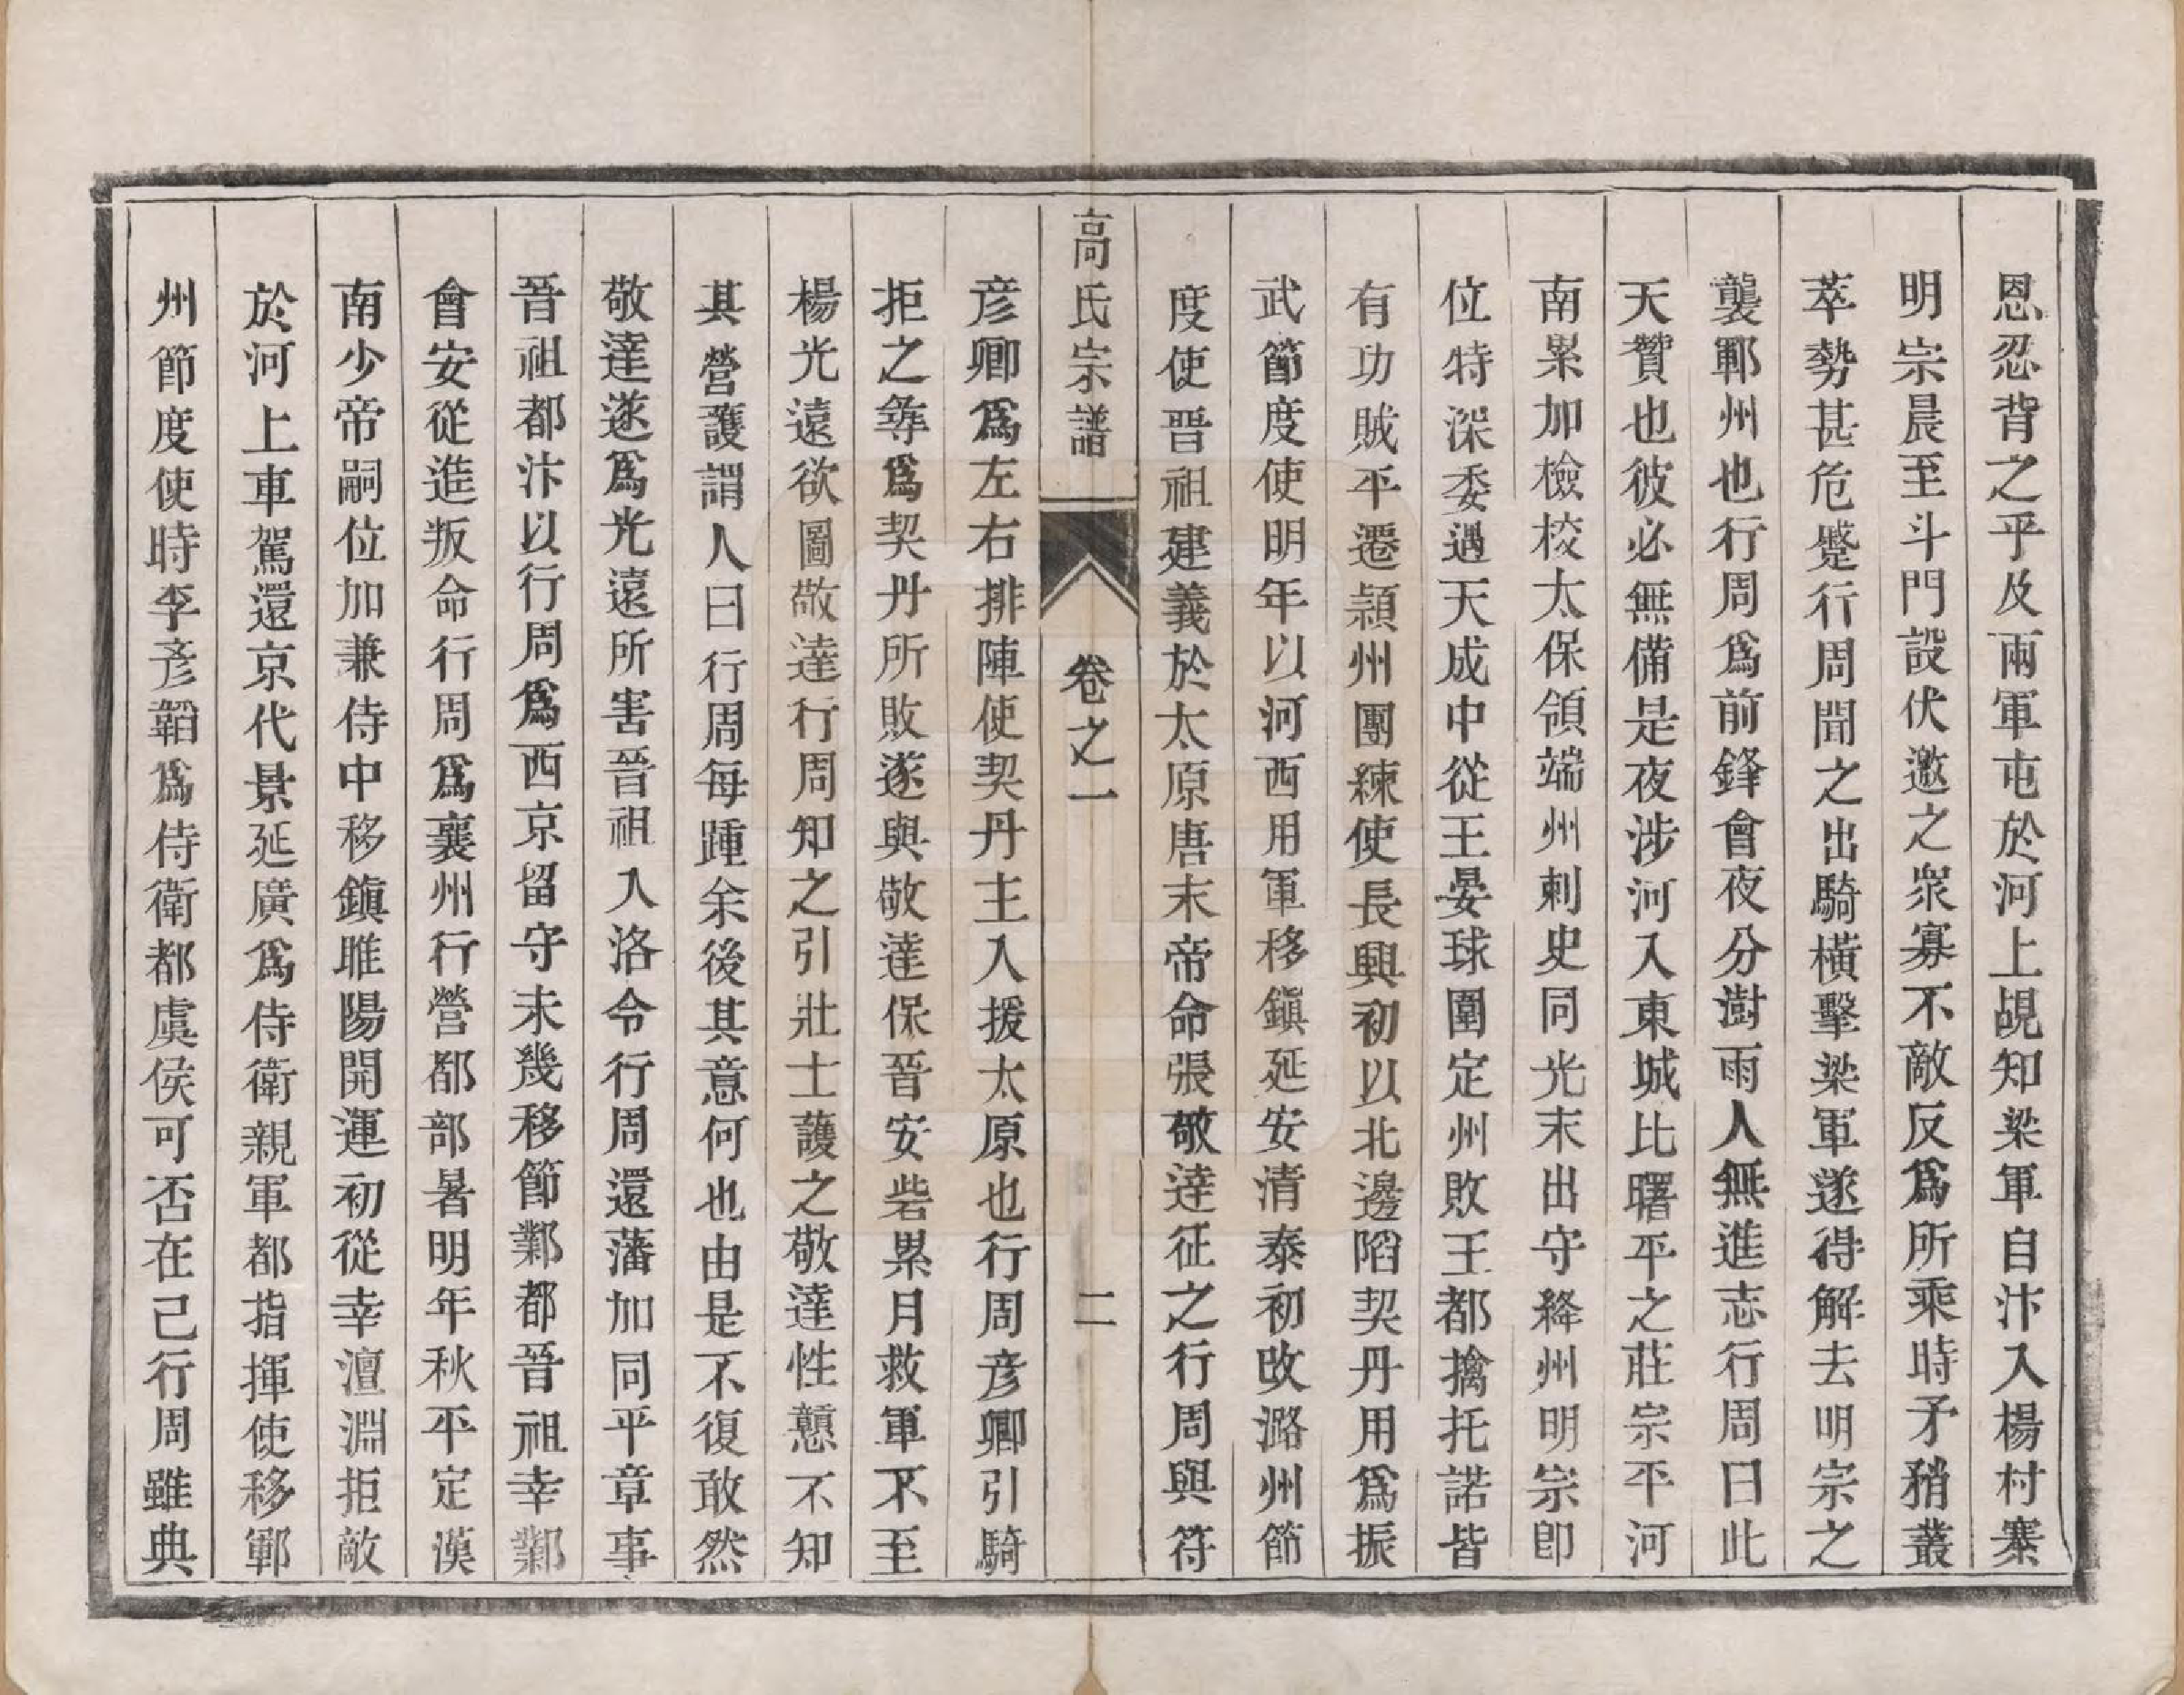 恩忍背之乎及兩軍屯於河上覘知梁軍自汴入楊村寨
明宗晨至斗門設伏邀之衆寡不敵反爲所乘時矛矟叢
萃勢甚危蹙行周聞之出騎橫擊梁軍遂得解去明宗之
襲鄆州也行周爲前鋒會夜分澍雨人無進志行周曰此
天贊也彼必無備是夜涉河入東城比曙平之莊宗平河
南累加檢校太保領端州刺史同光末出守絳州明宗卽
位特深委遇天成中從王晏球圍定州敗王都擒托諾皆
有功賊平遷潁州團練使長興初以北邊陷契丹用爲振
武節度使明年以河西用軍移鎭延安清泰初改潞州節
度使晉祖建義於太原唐末帝命張敬達征之行周與符
高氏宗譜 卷之一 二
彦卿爲左右排陣使契丹主入援太原也行周彦卿引騎
拒之尋爲契丹所敗遂與敬達保晉安砦累月救軍不至
楊光遠欲圖敬達行周知之引壯士護之敬達性戇不知
其營護謂人曰行周每踵余後其意何也由是不復敢然
敬達遂爲光遠所害晉祖入洛令行周還藩加同平章事
晉祖都汴以行周爲西京留守未幾移節鄴都晉祖幸鄴
會安從進叛命行周爲襄州行營都部署明年秋平定漢
南少帝嗣位加兼侍中移鎭睢陽開運初從幸澶淵拒敵
於河上車駕還京代景延廣爲侍衛親軍都指揮使移鄆
州節度使時李彦韜爲侍衛都虞侯可否在己行周雖典